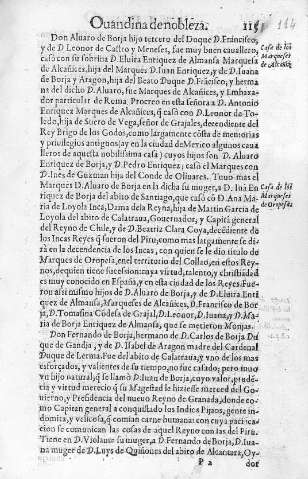 Ouandina de nobleza. 115 114
Don Aluaro de Borja hijo tercero del Duque D. Francisco,
y de D. Leonor de Castro y Meneses, fue muy buen cauallero,
casò con su sobrina D. Eluira Enriquez de Almansa Marquesa
de Alcañizes, hija del Marques D. Iuan Enriquez, y de D. Iuana
de Borja y Aragon, hija del Beato Duque D. Frācisco, y herma
na del dicho D. Aluaro, fue Marques de Alcañizes, y Embaxa-
dor particular de Roma. Procreo en esta señora à D. Antonio
Enriquez Marques de Alcañizes, q̃ casò con D. Leonor de To-
ledo, hija de Suero de Vega, señor de Grajales, decendiente del
Rey Brigo de los Godos, como largamente cōsta de memorias
y priuilegios antiguos, (ay en la ciudad de Mexico algunos caua
lleros de aquesta nobilisima casa) cuyos hijos son D. Aluaro
Enriquez de Borja, y D. Pedro Enriquez; casò el Marques con
D. Ines de Guzman hija del Conde de Oliuares. Tuuo mas el
Marques D. Aluaro de Borja en la dicha su muger, a D. Iuā En
riquez de Borja del abito de Santiago, que casò cō D. Ana Ma
ria de Loyola Inca, Dama dela Reyna, hija de Martin Garcia de
Loyola del abito de Calatraua, Gouernador, y Capitā general
del Reyno de Chile, y de D. Beatriz Clara Coya, decēdiente de
los Incas Reyes q̃ fueron del Piru, como mas largamēte se di-
rà en la decendencia de los Incas, con quien se le dio titulo de
Marques de Oropesa, en el territorio del Collao, en estos Rey-
nos, dequien tiene sucesion: cuya virtud, talento, y christiādad
es muy conocido en España, y en esta ciudad de los Reyes. Fue-
ron asi mismo hijos de D. Aluaro de Borja, y de D. Eluira Enri
quez de Almansa, Marqueses de Alcañizes, D. Francisco de Bor
ja, D. Tomasina Cōdesa de Grajal, D. Leonor, D. Iuana, y D. Ma
ria de Borja Enriquez de Almansa, que se metieron Monjas.
Don Fernando de Borja, hermano de D. Carlos de Borja Du
que de Gandia, y de D. Isabel de Aragon madre del Cardenal
Duque de Lerma. Fue del abito de Calatraua, y vno de los mas
esforçados, y valientes de su tiempo, no fue casado; pero tuuo
vn hijo natural, q̃ se llamò D. Iuan de Borja, cuyo valor, pruden
cia, y virtud merecio q̃ su Magestad le hiziese merced del Go-
uierno, y Presidencia del nueuo Reyno de Granada, donde co-
mo Capitan general a conquistado los Indios Pijaos, gente in-
domita, y velicosa, q̃ comian carne humana: con cuya pacifi-
cacion se comunican las cosas de aquel Reyno con las del Piru.
Tiene en D. Violante su muger, a D. Fernando de Borja, D. Iua
na muger de D. Luys de Quiñones del abito de Alcantara, Oy-
P 2 dor
Casa de los
Marqueses
de Alcañi-
Casa de los
Marqueses
de Oropesa